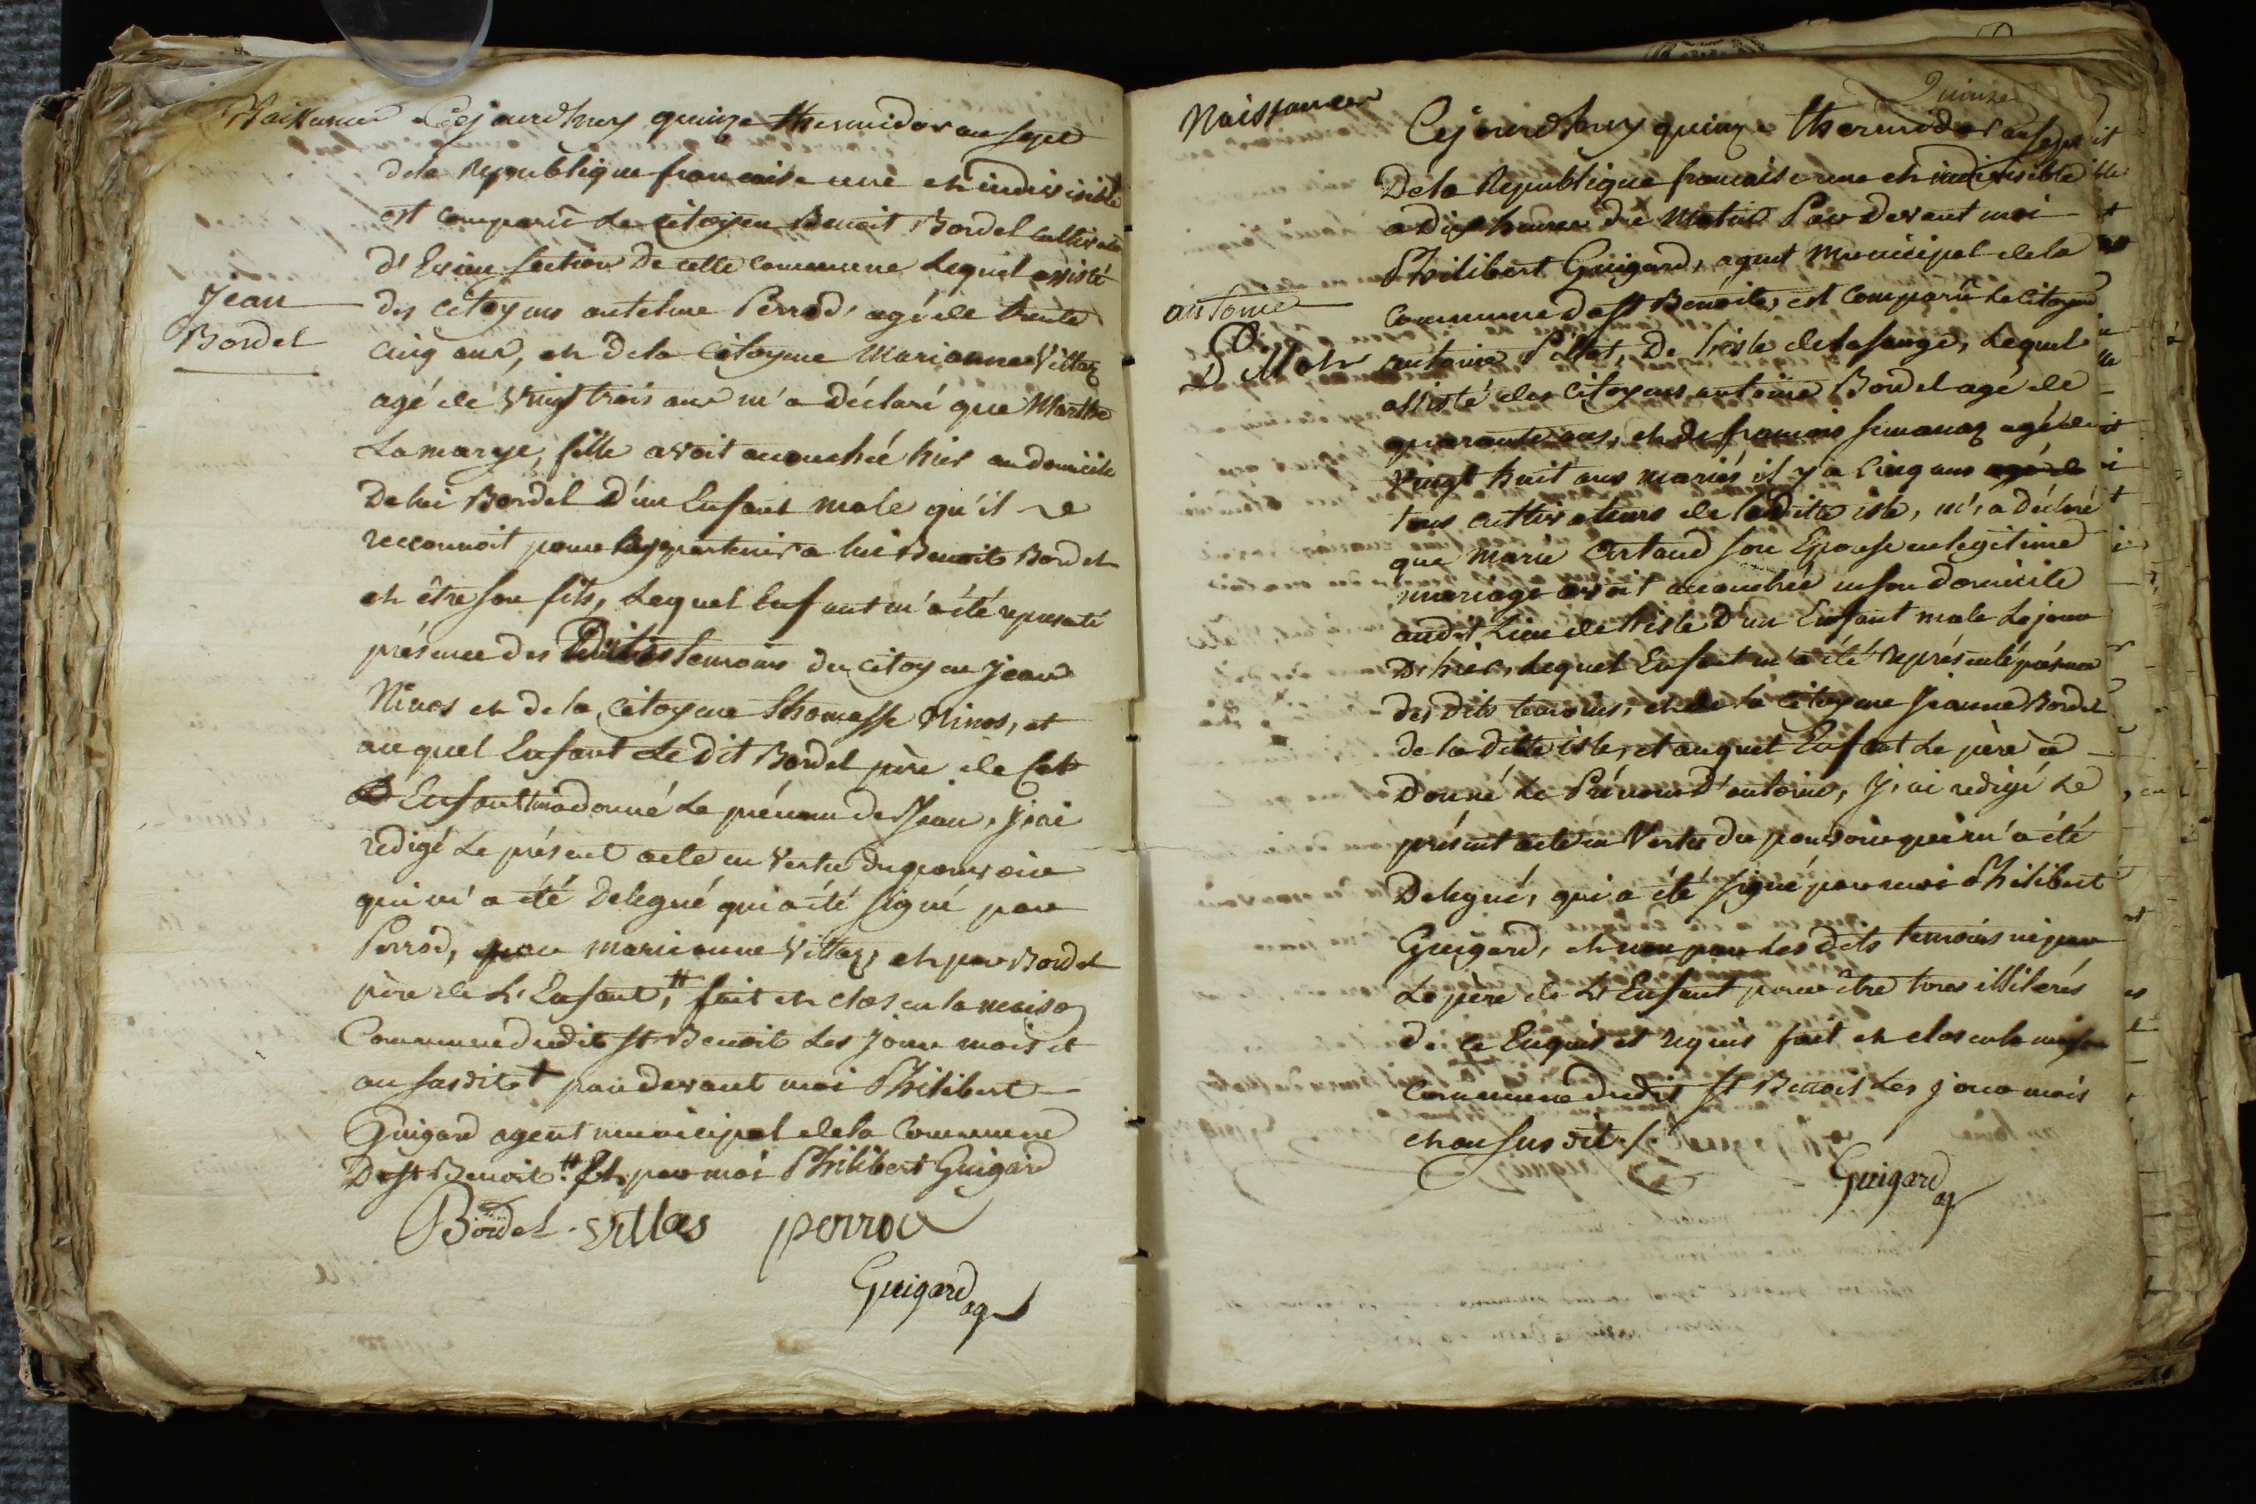 Naissance
Jean
Bordel
Cejourdhuy quinze thermidor an sept
de la Republique francaise une et indivisible
est comparû le citoyen Benoit Bordel cultivateur
d'Evieu section De cette commune lequel assisté
des citoyens antelme Perrod, agé de trente
cinq ans, et de la citoyene Marianne Villaz
agé de vingt trois ans m'a déclaré que Marthe
Lamarge, fille avoit accouchée hier au domicile
De lui Bordel D'un Enfant male qu'il
reconnoit pour appartenir a lui Benoit Bordel
et être son fils, Lequel Enfant m'a été representé
présence des Dittes temoins du citoyen Jean
Ninos et de la citoyene thomasse Ninos, et
auquel Enfant Le Dit Bordel père de Cet
Enfant m'a donné Le prénom de Jean, J'ai
redigé Le présent acte en vertu du pouvoir
qui m'a été Delegué qui a été signé par
Perrod, par marianne Villaz, et par Bordel
père de L'Enfant, # fait et clos en la maison
Commune dudit St Benoit Les Jour mois et
an susdit + par devant moi Philibert
Guigard agent municipal de la Commune
De St Benoit. # Et par moi Philibert Guigard
Bordel villas perrod
Guigard ag
Quinze
Naissance
antoine
Pillot
Cejourdhuy quinze thermidor an sept
De la Republique francaise une et indivisible
a Dix heures du Matin Par Devant moi
Philibert Guigard, agent Municipal de la
Commune de St Benoit, est comparû Le citoyen
antoine Pillot, De L'isle de la sauge, Lequel
assisté des citoyens antoine Bordel agé de
quarante ans, et de francois simanaz agé de
vingt huit ans mariés il y a Cinq ans
tous cultivateurs de la Ditte isle, m'a déclaré
que Marie Artaud son Epouse en legitime
mariage avoit accouchée en son domicile
audit Lieu de L'isle D'un Enfant male Le jour
D'hier, Lequel Enfant m'a été représenté présence
des Dits temoins, et de la citoyene Jeanne Bordel
de la Ditte isle, et auquel Enfant Le père a
Donné Le Prénom D'antoine, J'ai redigé Le
présent acte en Vertu du pouvoir qui m'a été
Delegué, qui a été signé par moi Philibert
Guigard, et non par Les Dits temoins ni par
Le père de L'Enfant pour être tous illiterés
de ce Enquis et requis fait et clos en la maison
Commune dudit St Benoit Les jour mois
et an susdit /.
Guigard ag